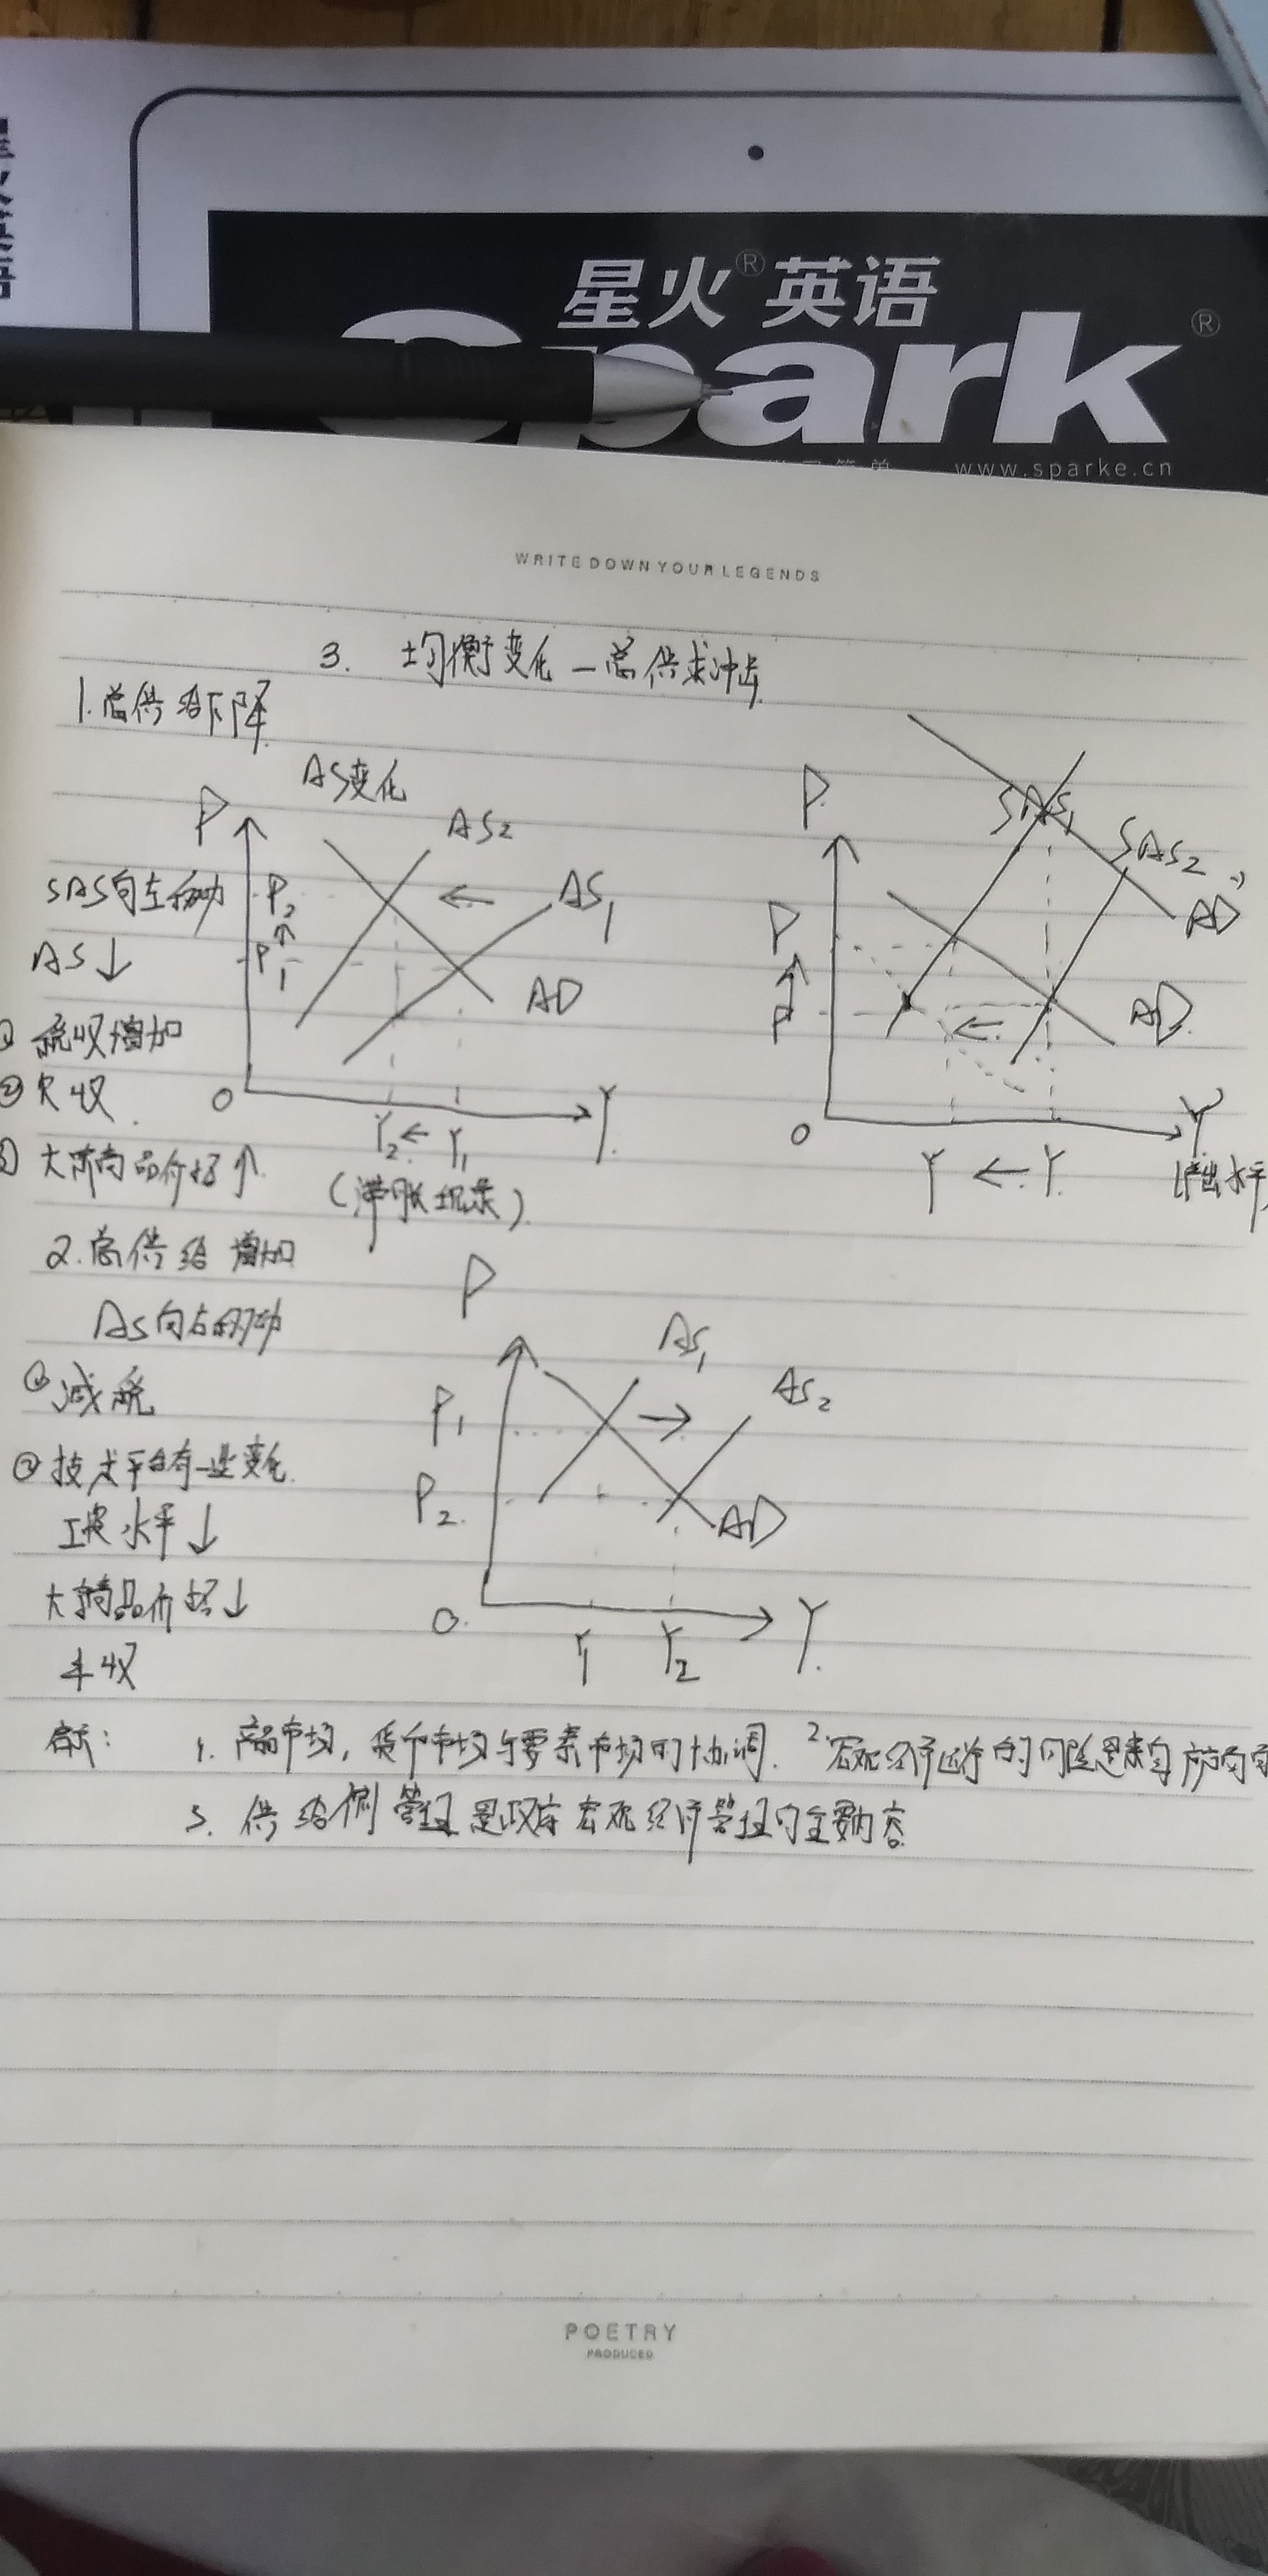 星火®英语
spark®
www.sparke.cn
WRITE DOWN YOUR LEGENDS
3. 均衡变化—总供求冲击
1.总供给下降
AS变化
P
AS2
SAS向左移动
P2
AS1
AS↓
P1
AD
① 税收增加
② 欠收
O
Y2 ← Y1
Y
大宗商品价格↑
(滞胀现象)
P
SAS1
SAS2
AD
P
P
AD
O
Y
Y ← Y
(产出水平
2.总供给增加
AS向右移动
P
AS1
AS2
① 减税
P1
② 技术平台有一些变化
P2
AD
工资水平↓
大宗商品价格↓
O
Y1
Y2
Y
丰收
启示: 1. 产品市场,货币市场与要素市场的协调. 2 宏观经济运行的问题是来自
3. 供给侧管理是政府宏观经济管理的主要内容
POETRY
PRODUCED